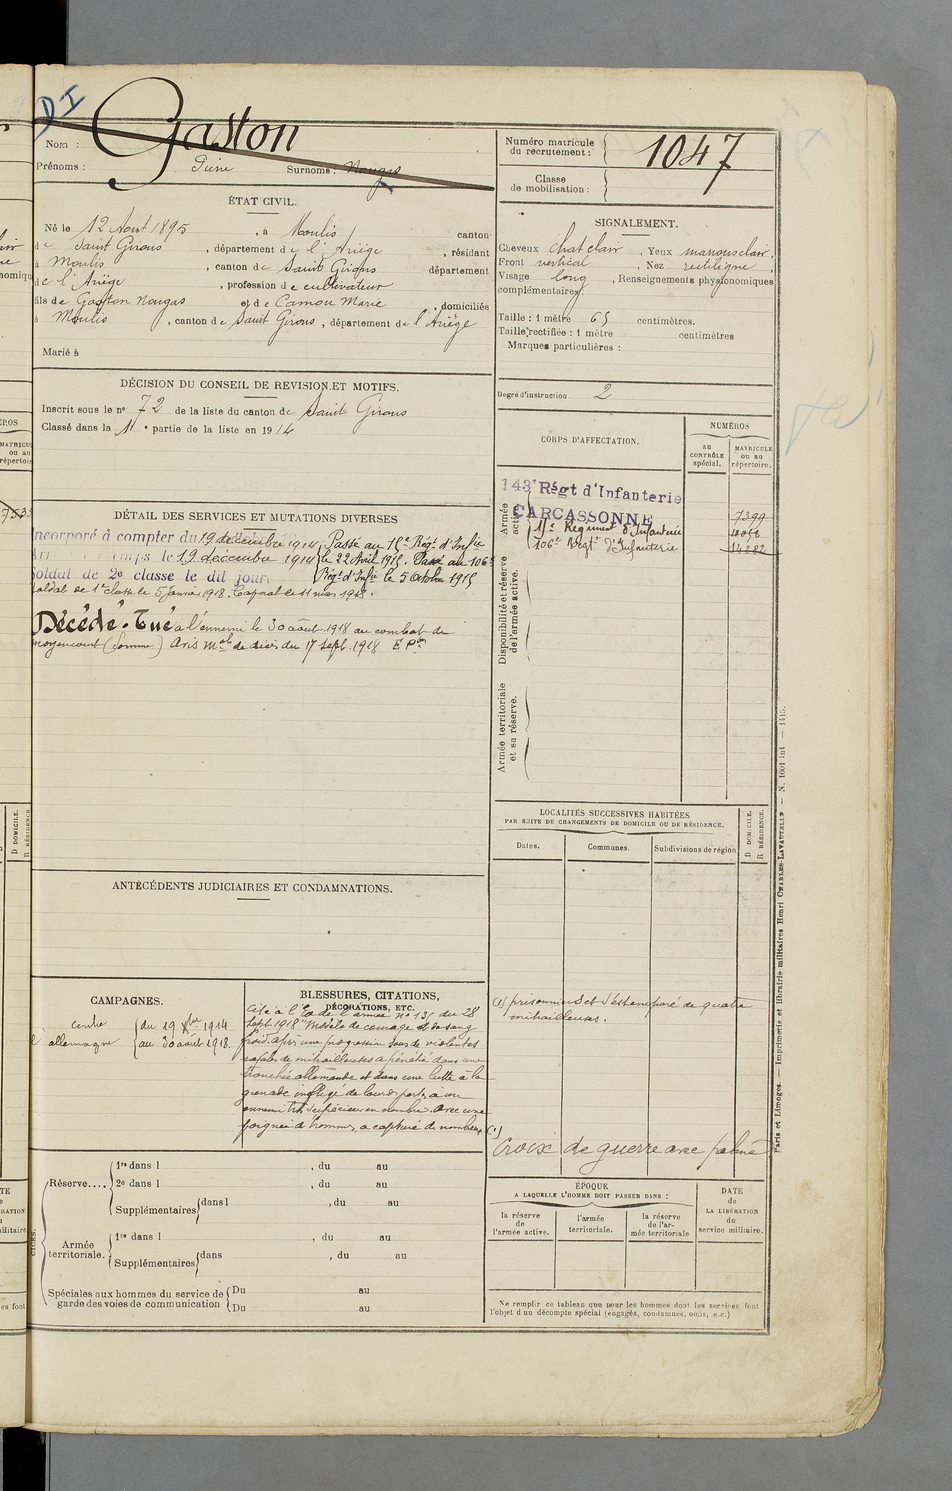 DI
Gaston
Nom :
Prénoms : Pierre Surnoms : Nougas
Numéro matricule du recrutement : 1047
Classe de mobilisation :
ÉTAT CIVIL.
Né le 12 Aout 1895, à Moulis canton
de Saint Girons, département de l'Ariège, résidant
à Moulis, canton de Saint Girons département
de l'Ariège, profession de cultivateur
fils de Gaston Nougas et de Camou Marie, domiciliés
à Moulis, canton de Saint Girons, département de l'Ariège
Marié à
SIGNALEMENT.
Cheveux chat clair, Yeux marrons clair,
Front vertical, Nez rectiligne,
Visage long, Renseignements physionomiques
complémentaires:
Taille : 1 mètre 65 centimètres.
Taille rectifiée : 1 mètre centimètres
Marques particulières :
Degré d'instruction. 2
DÉCISION DU CONSEIL DE REVISION ET MOTIFS.
Inscrit sous le n° 72 de la liste du canton de Saint Girons
Classé dans la 1re partie de la liste en 1914
CORPS D'AFFECTATION.
NUMÉROS
au CONTRÔLE spécial.
MATRICULE ou au répertoire.
Armée active.
143e Régt d'Infanterie
CARCASSONNE 7399
Régiment d'Infanterie
106e Régt d'Infanterie
Disponibilité et réserve de l'armée active.
Armée territoriale et sa réserve.
DÉTAIL DES SERVICES ET MUTATIONS DIVERSES
Incorporé à compter du 19 décembre 1914, Passé au 15e Régt d'Infie
le 19 décembre 1914 le 22 Avril 1915. Passé au 106e
Soldat de 2e classe le dit jour. Régt d'Infie le 5 Octobre 1915
Soldat de 1e classe le 5 janvier 1918. Caporal le 11 mars 1918.
Décédé. Tué à l'ennemi le 30 août 1918 au combat de
Moyencourt (Somme) Avis Mel de décès du 17 Sept. 1918
ANTÉCÉDENTS JUDICIAIRES ET CONDAMNATIONS.
LOCALITÉS SUCCESSIVES HABITÉES
PAR SUITE DE CHANGEMENTS DE DOMICILE OU DE RÉSIDENCE.
Dates.
Communes.
Subdivisions de région
D DOMICILE.
R RÉSIDENCE.
CAMPAGNES.
Contre l'allemagne du 19 Xbre 1914
au 30 août 1918.
BLESSURES, CITATIONS,
DÉCORATIONS, ETC.
Cité à l'O. de l'armée n° 135 du 28
Sept. 1918 "Modèle de courage et de sang
froid. après une progression sous de violentes
rafales de mitrailleuses a pénétré dans une
tranchée allemande et dans une lutte à la
grenade infligé de lourdes pertes à un
ennemi très supérieur en nombre. Avec une
poignée d'hommes, a capturé de nombreux (1)
(1) prisonniers et s'est emparé de quatre
mitrailleuses.
Croix de guerre avec palme
Réserve....
1re dans l , du au
2e dans l , du au
Supplémentaires dans l , du au
Armée territoriale.
1re dans l , du au
Supplémentaires dans , du au
Spéciales aux hommes du service de garde des voies de communication
Du au
Du au
ÉPOQUE
A LAQUELLE L'HOMME DOIT PASSER DANS :
la réserve de l'armée active.
l'armée territoriale.
la réserve de l'armée territoriale
DATE DE LA LIBÉRATION du service militaire.
Ne remplir ce tableau que pour les hommes dont les services font
l'objet d'un décompte spécial (engagés, condamnés, omis, e.c.)
Paris et Limoges. — Imprimerie et librairie militaires Henri CHARLES-LAVAUZELLE — N. 1001 int — 1415.